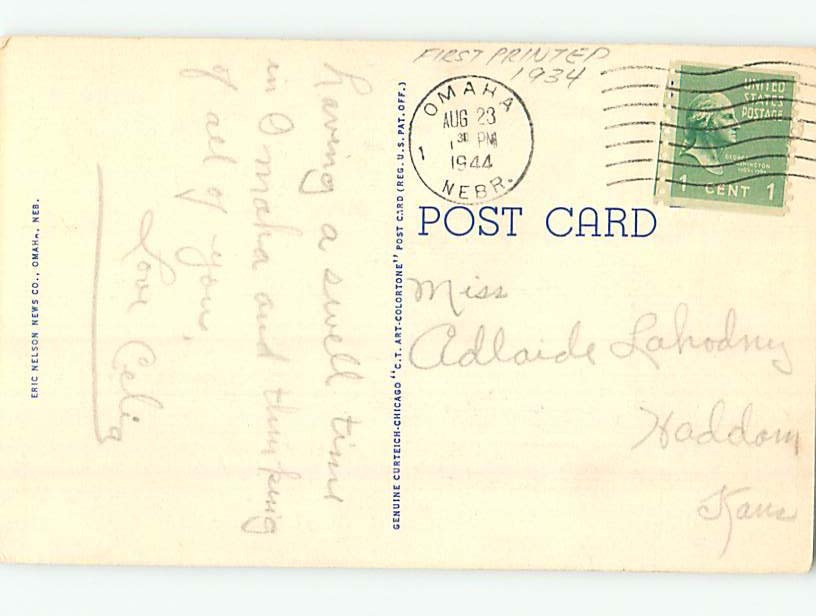 FIRST PRINTED
1934
OMAHA
AUG 23
1 30 PM
1944
NEBR.
1
UNITED
STATES
POSTAGE
1 CENT 1
POST CARD
Miss
Adlaide Lahodny
Haddam
Kans
Having a swell time
in Omaha and thinking
of all of you.
Love Celia
GENUINE CURTEICH-CHICAGO "C.T. ART-COLORTONE" POST CARD (REG. U.S. PAT. OFF.)
ERIC NELSON NEWS CO., OMAHA, NEB.